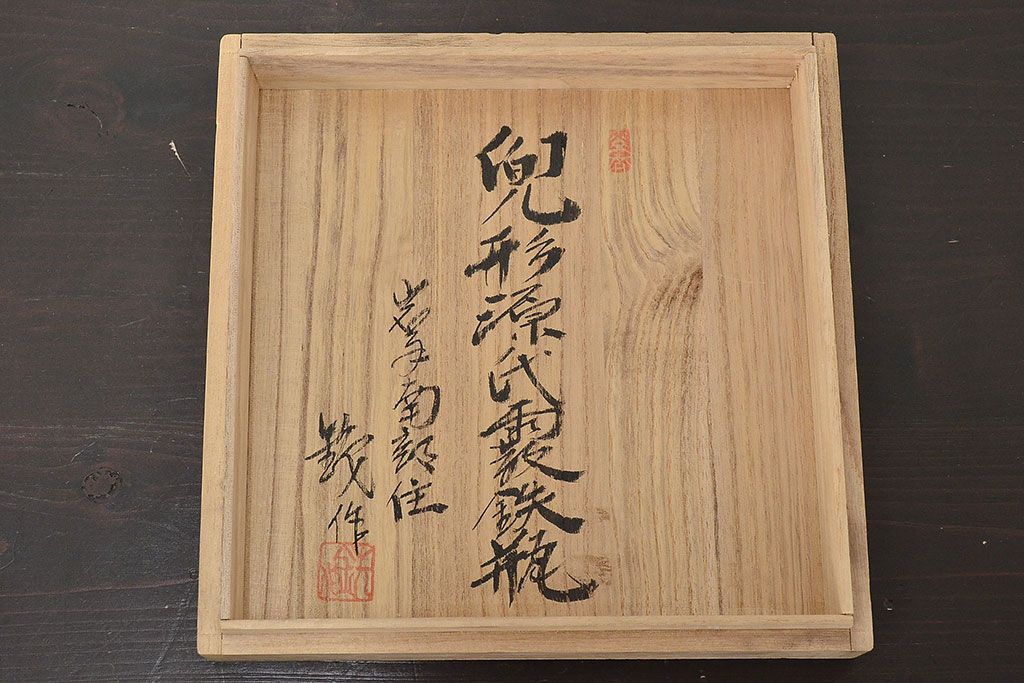 兜形源氏霰鉄瓶
岩手南部住
作